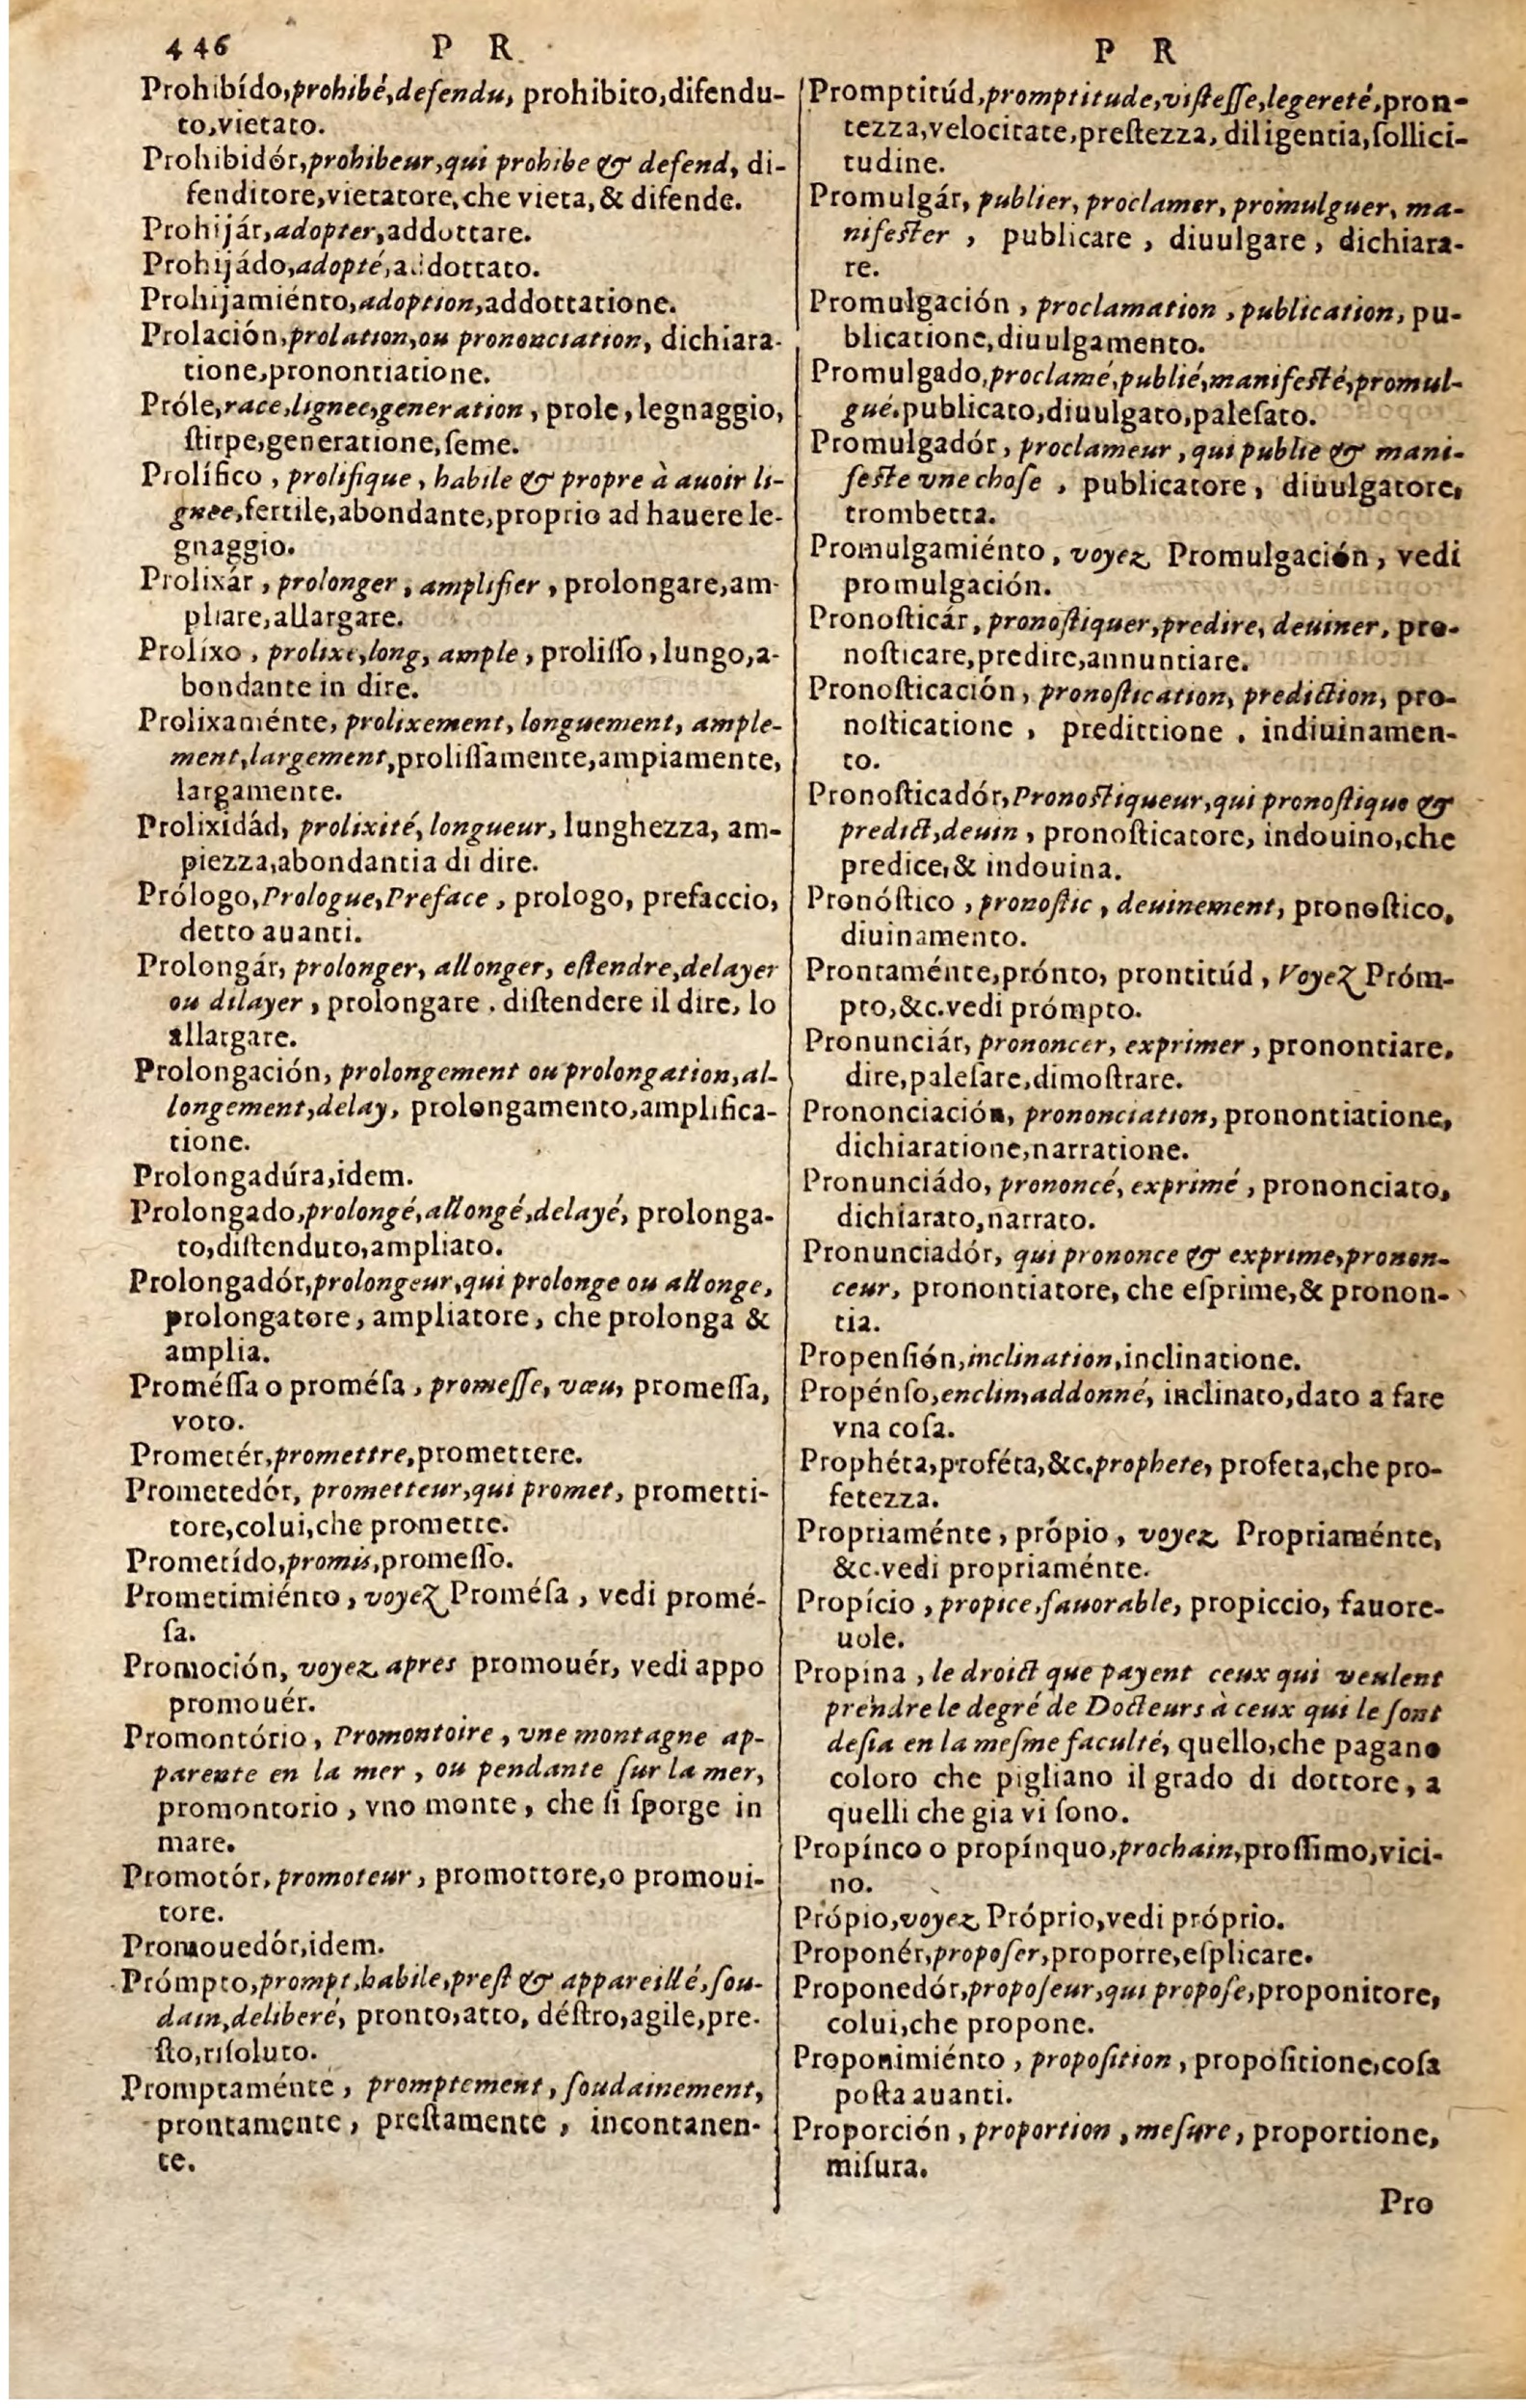 446 P R
Prohibído,prohibé,defendu, prohibito,difendu-
to,vietato.
Prohibidór,prohibeur,qui prohibe & defend, di-
fenditore,vietatore,che vieta,& difende.
Prohijár,adopter,addottare.
Prohijádo,adopté,addottato.
Prohijamiénto,adoption,addottatione.
Prolación,prolation,ou prononciation, dichiara-
tione,pronontiatione.
Próle,race,lignee,generation, prole, legnaggio,
ſtirpe,generatione,ſeme.
Prolífico, prolifique, habile & propre à auoir li-
gnee,fertile,abondante,proprio ad hauere le-
gnaggio.
Prolixár, prolonger, amplifier, prolongare,am-
pliare,allargare.
Prolíxo, prolixe,long, ample, proliſſo, lungo,a-
bondante in dire.
Prolixaménte, prolixement, longuement, ample-
ment,largement,proliſſamente,ampiamente,
largamente.
Prolixidád, prolixité, longueur, lunghezza, am-
piezza,abondantia di dire.
Prólogo,Prologue,Preface, prologo, prefaccio,
detto auanti.
Prolongár, prolonger, allonger, eſtendre,delayer
ou dilayer, prolongare, diſtendere il dire, lo
allargare.
Prolongación, prolongement ou prolongation,al-
longement,delay, prolongamento,amplifica-
tione.
Prolongadúra,idem.
Prolongado,prolongé,allongé,delayé, prolonga-
to,diſtenduto,ampliato.
Prolongadór,prolongeur,qui prolonge ou allonge,
prolongatore, ampliatore, che prolonga &
amplia.
Proméſſa o proméſa, promeſſe, vœu, promeſſa,
voto.
Prometér,promettre,promettere.
Prometedór, prometteur,qui promet, prometti-
tore,colui,che promette.
Prometído,promis,promeſſo.
Prometimiénto, voyez Proméſa, vedi promé-
ſa.
Promoción, voyez apres promouér, vedi appo
promouér.
Promontório, Promontoire, vne montagne ap-
parente en la mer, ou pendante ſur la mer,
promontorio, vno monte, che ſi ſporge in
mare.
Promotór, promoteur, promottore,o promoui-
tore.
Promouedór,idem.
Prómpto,prompt,habile,preſt & appareillé,ſou-
dain,deliberé, pronto,atto, déſtro,agile,pre-
ſto,riſoluto.
Promptaménte, promptement, ſoudainement,
prontamente, preſtamente, incontanen-
te.
P R
Promptitúd,promptitude,viſteſſe,legereté,pron-
tezza,velocitate,preſtezza, diligentia,ſollici-
tudine.
Promulgár, publier, proclamer, promulguer, ma-
nifeſter, publicare, diuulgare, dichiara-
re.
Promulgación, proclamation, publication, pu-
blicatione,diuulgamento.
Promulgado,proclamé,publié,manifeſté,promul-
gué,publicato,diuulgato,paleſato.
Promulgadór, proclameur, qui publie & mani-
feſte vne choſe, publicatore, diuulgatore,
trombetta.
Promulgamiénto, voyez Promulgación, vedi
promulgación.
Pronoſticár, pronoſtiquer,predire, deuiner, pro-
noſticare,predire,annuntiare.
Pronoſticación, pronoſtication, prediction, pro-
noſticatione, predittione, indiuinamen-
to.
Pronoſticadór,Pronoſtiqueur,qui pronoſtique &
predict,deuin, pronoſticatore, indouino,che
predice,& indouina.
Pronóſtico, pronoſtic, deuinement, pronoſtico,
diuinamento.
Prontaménte,prónto, prontitúd, Voyez Próm-
pto,&c.vedi prómpto.
Pronunciár, prononcer, exprimer, pronontiare,
dire,paleſare,dimoſtrare.
Prononciación, prononciation, pronontiatione,
dichiaratione,narratione.
Pronunciádo, prononcé, exprimé, prononciato,
dichiarato,narrato.
Pronunciadór, qui prononce & exprime,pronon-
ceur, pronontiatore, che eſprime,& pronon-
tia.
Propenſión,inclination,inclinatione.
Propénſo,enclin,addonné, inclinato,dato a fare
vna coſa.
Prophéta,proféta,&c.prophete, profeta,che pro-
fetezza.
Propriaménte, própio, voyez Propriaménte,
&c.vedi propriaménte.
Propício, propice,fauorable, propiccio, fauore-
uole.
Propína, le droict que payent ceux qui veulent
prendre le degré de Docteurs à ceux qui le ſont
deſia en la meſme faculté, quello,che pagano
coloro che pigliano il grado di dottore, a
quelli che gia vi ſono.
Propínco o propínquo,prochain,proſſimo,vici-
no.
Própio,voyez Próprio,vedi próprio.
Proponér,propoſer,proporre,eſplicare.
Proponedór,propoſeur,qui propoſe,proponitore,
colui,che propone.
Proponimiénto, propoſition, propoſitione,coſa
poſta auanti.
Proporción, proportion, meſure, proportione,
miſura.
Pro